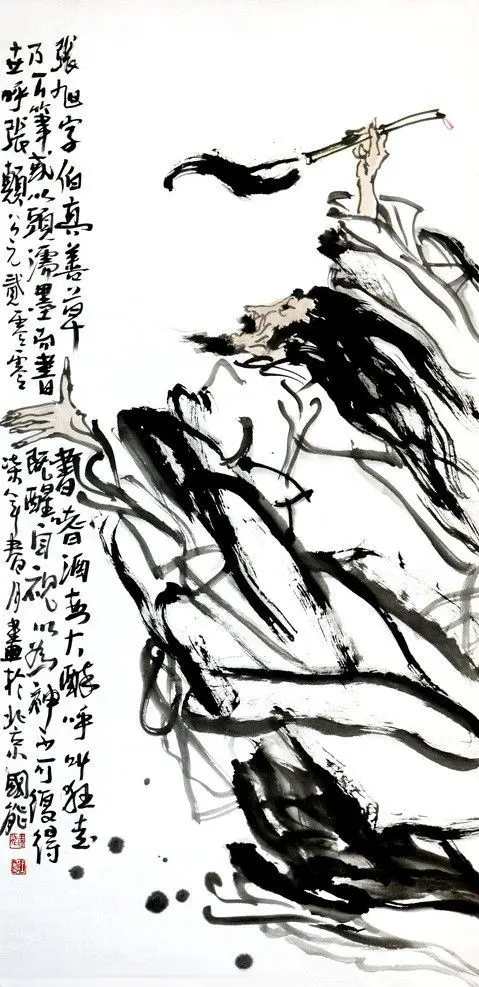 張旭字伯真善草書嗜酒每大醉呼叫狂走
乃下筆或以頭濡墨而書既醒自視以為神不可復得
世呼張顛公元貳零零柒年春月畫於北京國能